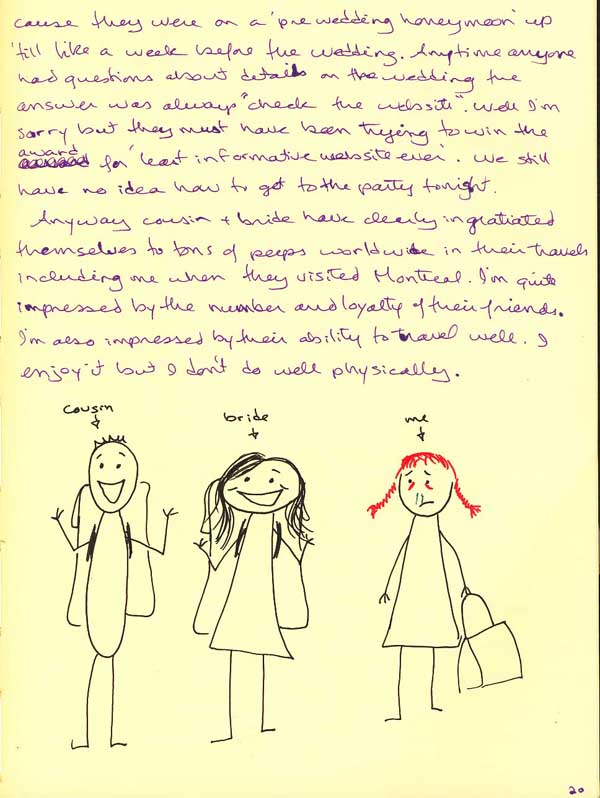 cause they were on a 'pre wedding honeymoon' up
'till like a week before the wedding. Anytime anyone
had questions about details on the wedding the
answer was always "check the website". Well I'm
sorry but they must have been trying to win the
award
for 'least informative website ever'. We still
have no idea how to get to the party tonight.
Anyway cousin + bride have clearly ingratiated
themselves to tons of peeps worldwide in their travels
including me when they visited Montreal. I'm quite
impressed by the number and loyalty of their friends.
I'm also impressed by their ability to travel well. I
enjoy it but I don't do well physically.
cousin
bride
me
20